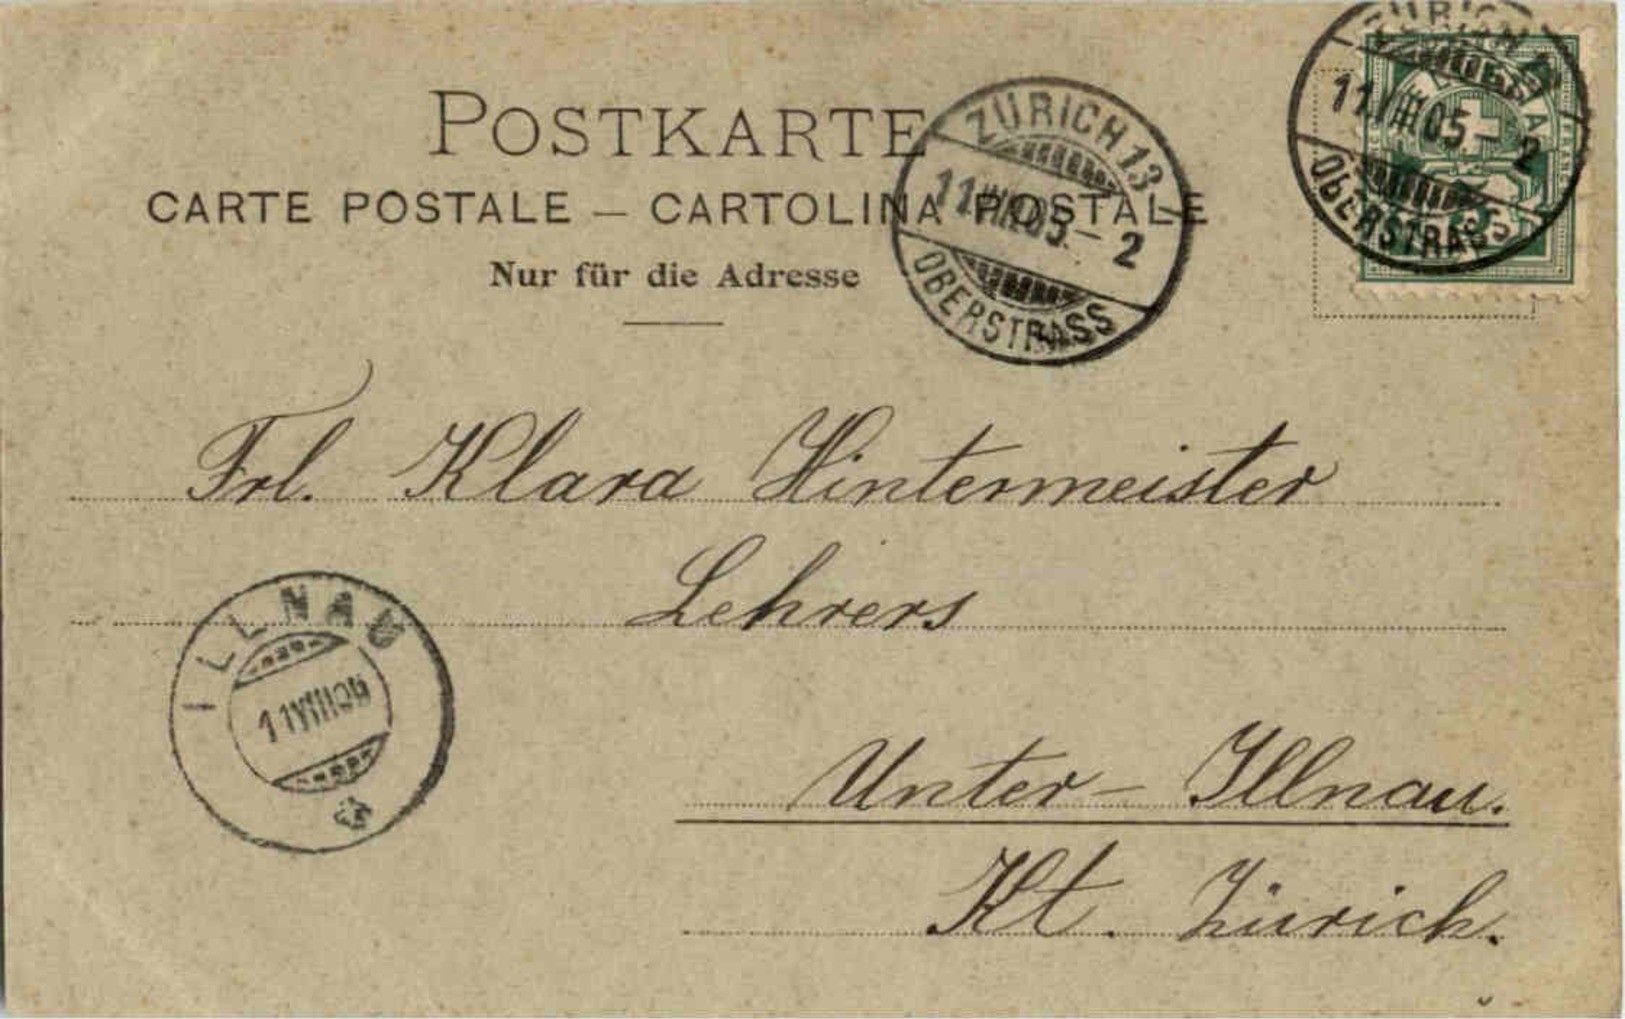 POSTKARTE
CARTE POSTALE – CARTOLINA POSTALE
Nur für die Adresse
ZÜRICH 13
11.VIII.05.–2
OBERSTRASS
ZÜRICH 13
11.VIII.05.–2
OBERSTRASS
Frl. Klara Hintermeister
Lehrers
Unter-Illnau.
Kt. Zürich.
ILLNAU
11VIII05